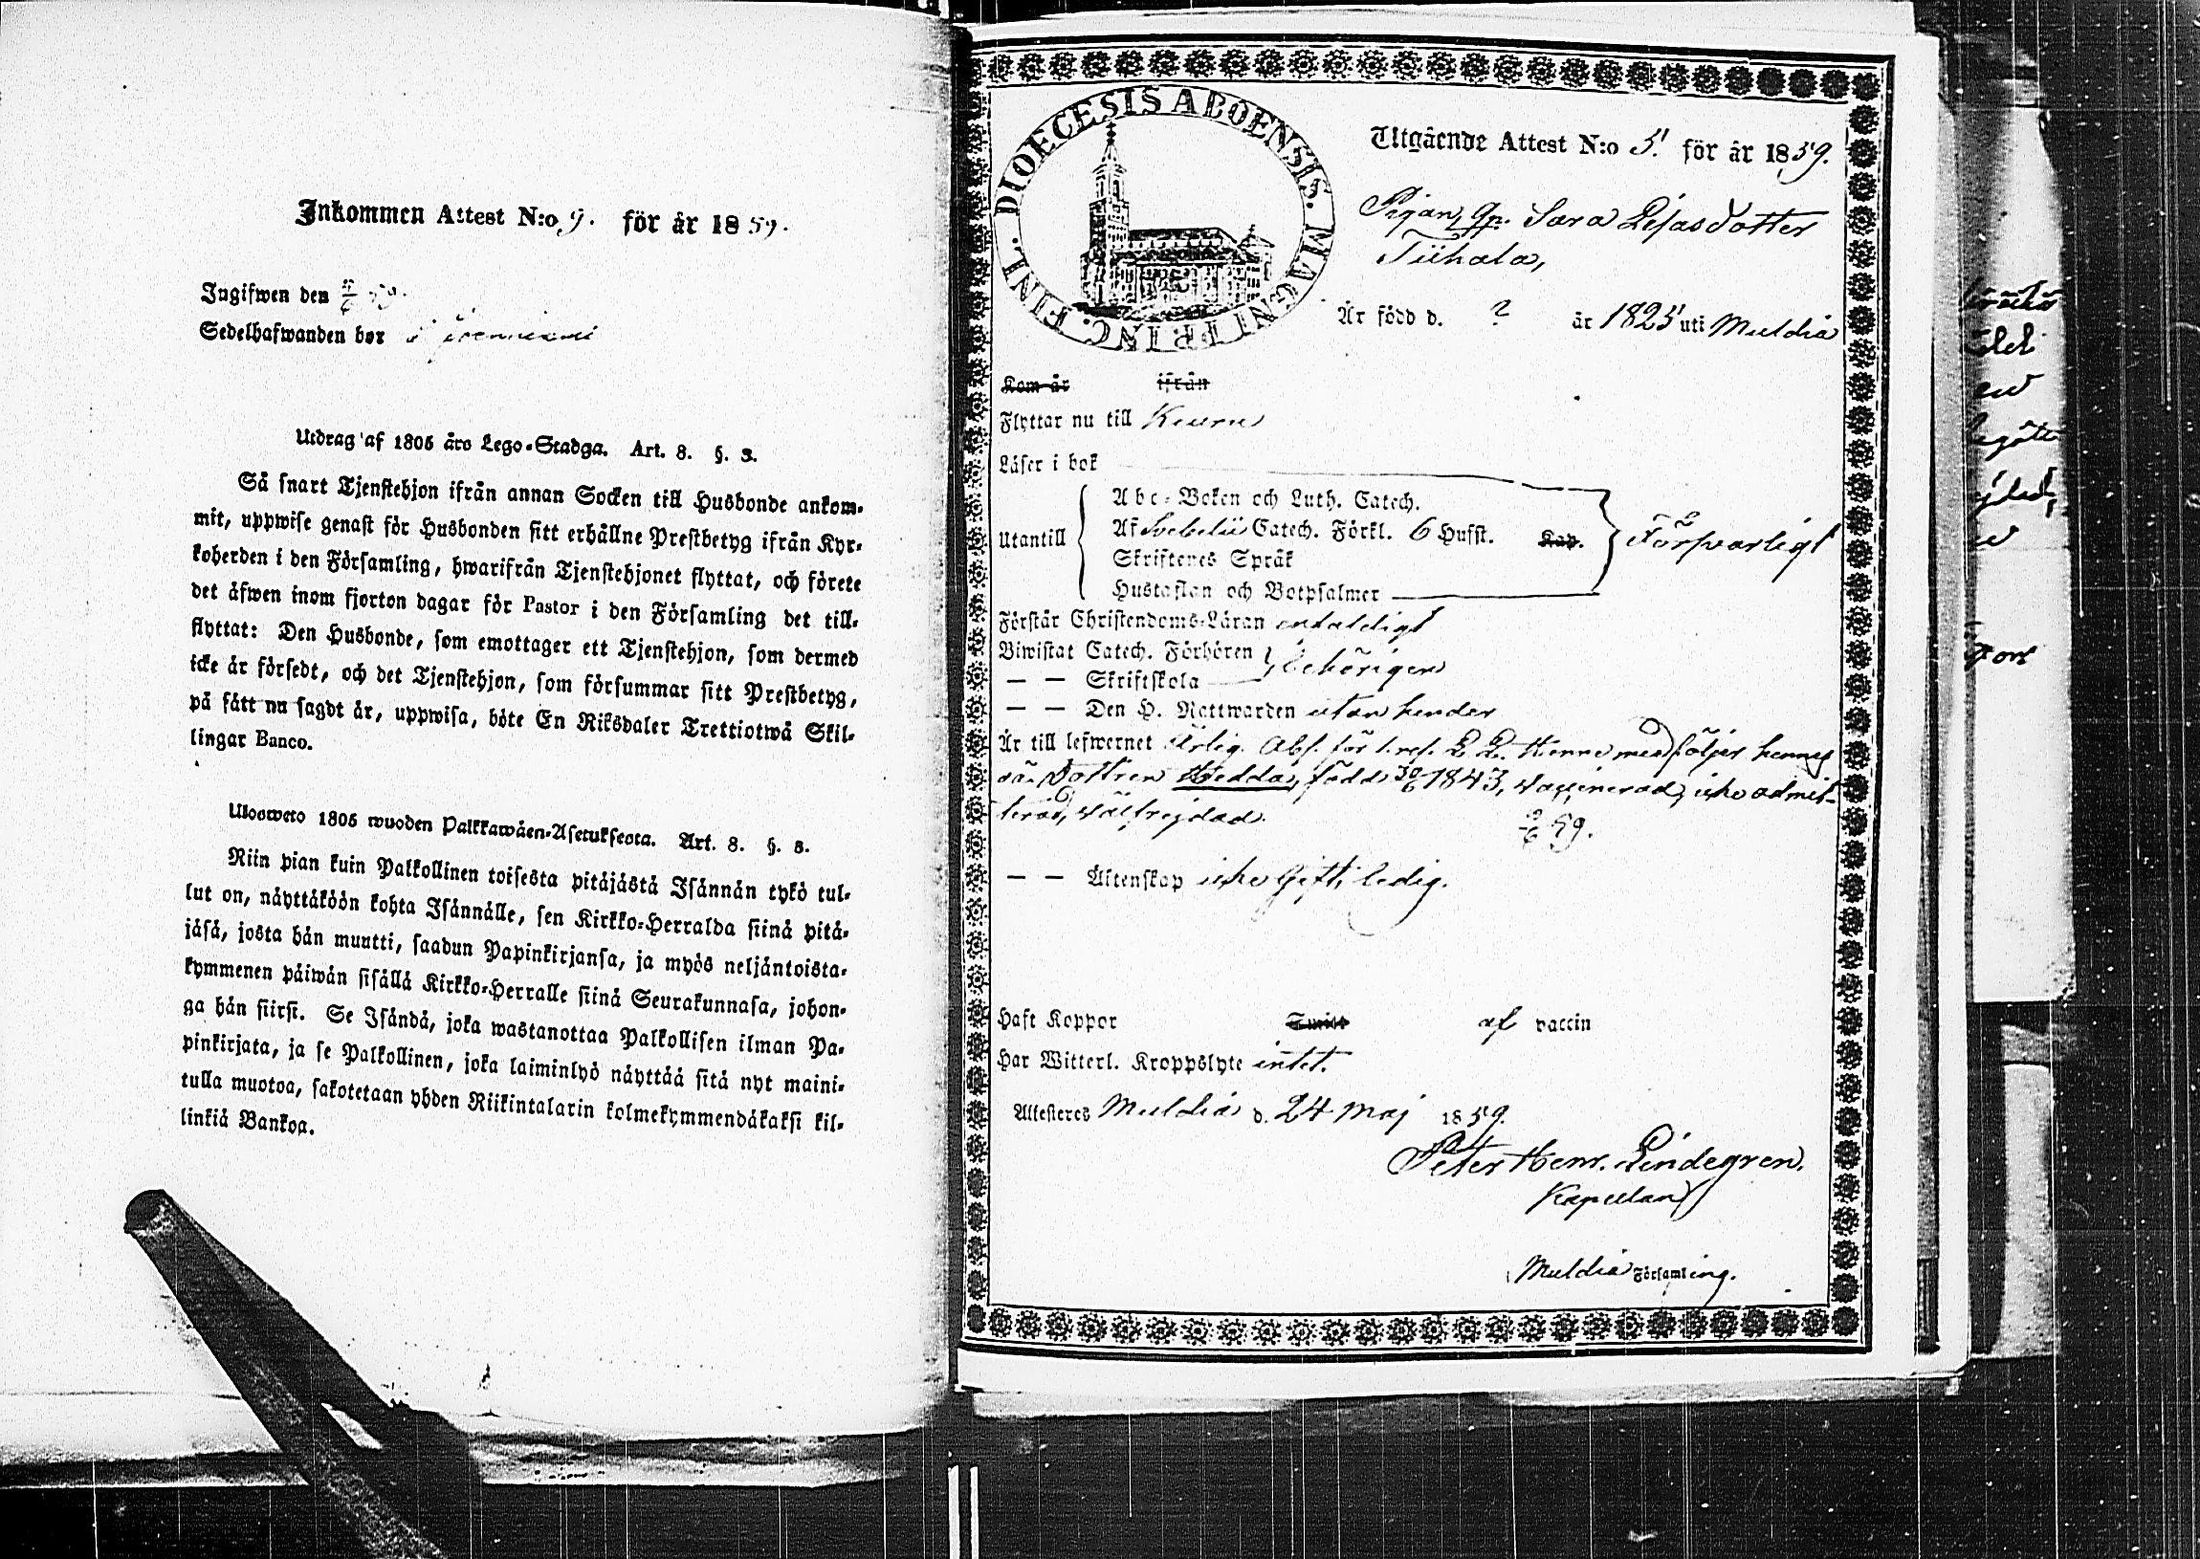 Inkommen Attest N:o 9. för år 1859.
Ingifwen den 9/6 59.
Sedelhafwanden bor i
Utdrag af 1805 års Lego-Stadga. Art. 8. §. 3.
Så snart Tjenstehjon ifrån annan Socken till Husbonde ankom-
mit, uppwise genast för Husbonden sitt erhållne Prestbetyg ifrån Kyr-
koherden i den Församling, hwarifrån Tjenstehjonet flyttat, och förete
det äfwen inom fjorton dagar för Pastor i den Församling det till-
flyttat: Den Husbonde, som emottager ett Tjenstehjon, som dermed
icke är försedt, och det Tjenstehjon, som försummar sitt Prestbetyg,
på sätt nu sagdt är, uppwisa, böte En Riksdaler Trettiotwå Skil-
lingar Banco.
Ulosweto 1805 wuoden Palkkawäen-Asetuksesta. Art. 8. §. 3.
Niin pian kuin Palkollinen toisesta pitäjästä Isännän tykö tul-
lut on, näyttäköön kohta Isännälle, sen Kirkko-Herralda siinä pitä-
jäsä, josta hän muutti, saadun Papinkirjansa, ja myös neljäntoista-
kymmenen päiwän sisällä Kirkko-Herralle siinä Seurakunnasa, johon-
ga hän siirsi. Se Isändä, joka wastanottaa Palkollisen ilman Pa-
pinkirjata, ja se Palkollinen, joka laiminlyö näyttää sitä nyt maini-
tulla muotoa, sakotetaan yhden Riikintalarin kolmekymmendäkaksi kil-
linkiä Bankoa.
DIOECESIS ABOENSIS. MAGNI PRINC. FINL.
Utgående Attest N:o 5. för år 1859.
Pigan, Qp. Sara Lisasdotter
Tiihala,
Är född d. ? år 1825 uti Muldia
Kom år ifrån
Flyttar nu till Keuru
Läser i bok
Utantill
Abc-Boken och Luth. Catech.
Af Svebelii Catech. Förkl. 6 Hufst. Kap.
Skriftenes Språk
Hustaflan och Botpsalmer
Försvarligt
Förstår Christendoms-Läran
Biwistat Catech. Förhören
— — Skriftskola
behörigen
— — Den H. Nattwarden utan hinder
Är till lefwernet Ärlig. Abs. för 1. res. L. L. Henne medföljer hennes
oä. Dottren Hedda, född 30/6 1843, vaccinerad, icke admit-
terad, välfrejdad. 9/6 59.
— — Äktenskap icke Gift, ledig.
Haft Koppor Smitt af vaccin
Har Witterl. Kroppslyte intet.
Attesteres Muldia d. 24 Maj 1859.
Peter Henr. Lindegren.
Kapellan
Muldia Församling.